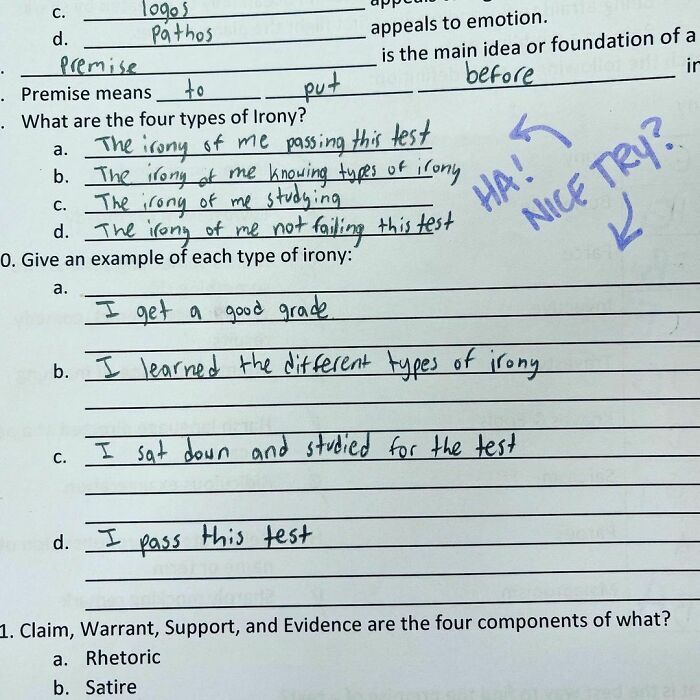 c. logos
d. Pathos appeals to emotion.
Premise is the main idea or foundation of a
Premise means to put before
What are the four types of Irony?
a. The irony of me passing this test
b. The irony of me knowing types of irony
c. The irony of me studying
d. The irony of me not failing this test
HA!
NICE TRY?
0. Give an example of each type of irony:
a. I get a good grade
b. I learned the different types of irony
c. I sat down and studied for the test
d. I pass this test
1. Claim, Warrant, Support, and Evidence are the four components of what?
a. Rhetoric
b. Satire